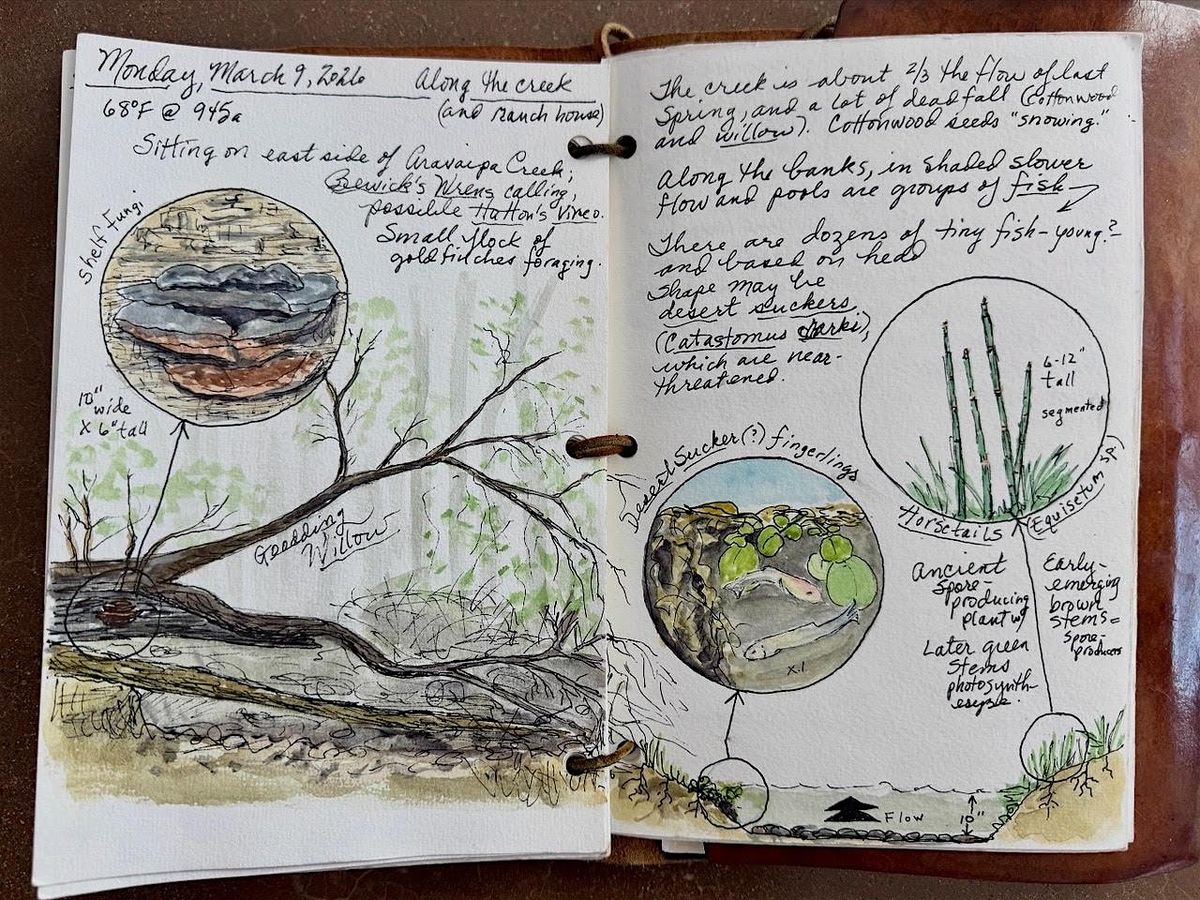 Monday, March 9, 2026 Along the creek
68°F @ 945a (and ranch house)
Sitting on east side of Aravaipa Creek;
Bewick's Wrens calling,
possible Hutton's Vireo.
Small flock of
goldfinches foraging.
Shelf Fungi
10"
wide
x 6" tall
Goodding
Willow
The creek is about 2/3 the flow of last
Spring, and a lot of deadfall (cottonwood
and willow). Cottonwood seeds "snowing."
Along the banks, in shaded slower
flow and pools are groups of fish
There are dozens of tiny fish - young?
and based on head
shape may be
desert suckers
(Catastomus clarki),
which are near-
threatened.
6-12"
tall
segmented
Desert Sucker (?) fingerlings
x.1
Horsetails (Equisetum sp)
Ancient
spore-
producing
plant w/
Later green
stems
photosynth-
esyzle.
Early-
emerging
brown
stems =
spore-
producers
Flow
10"